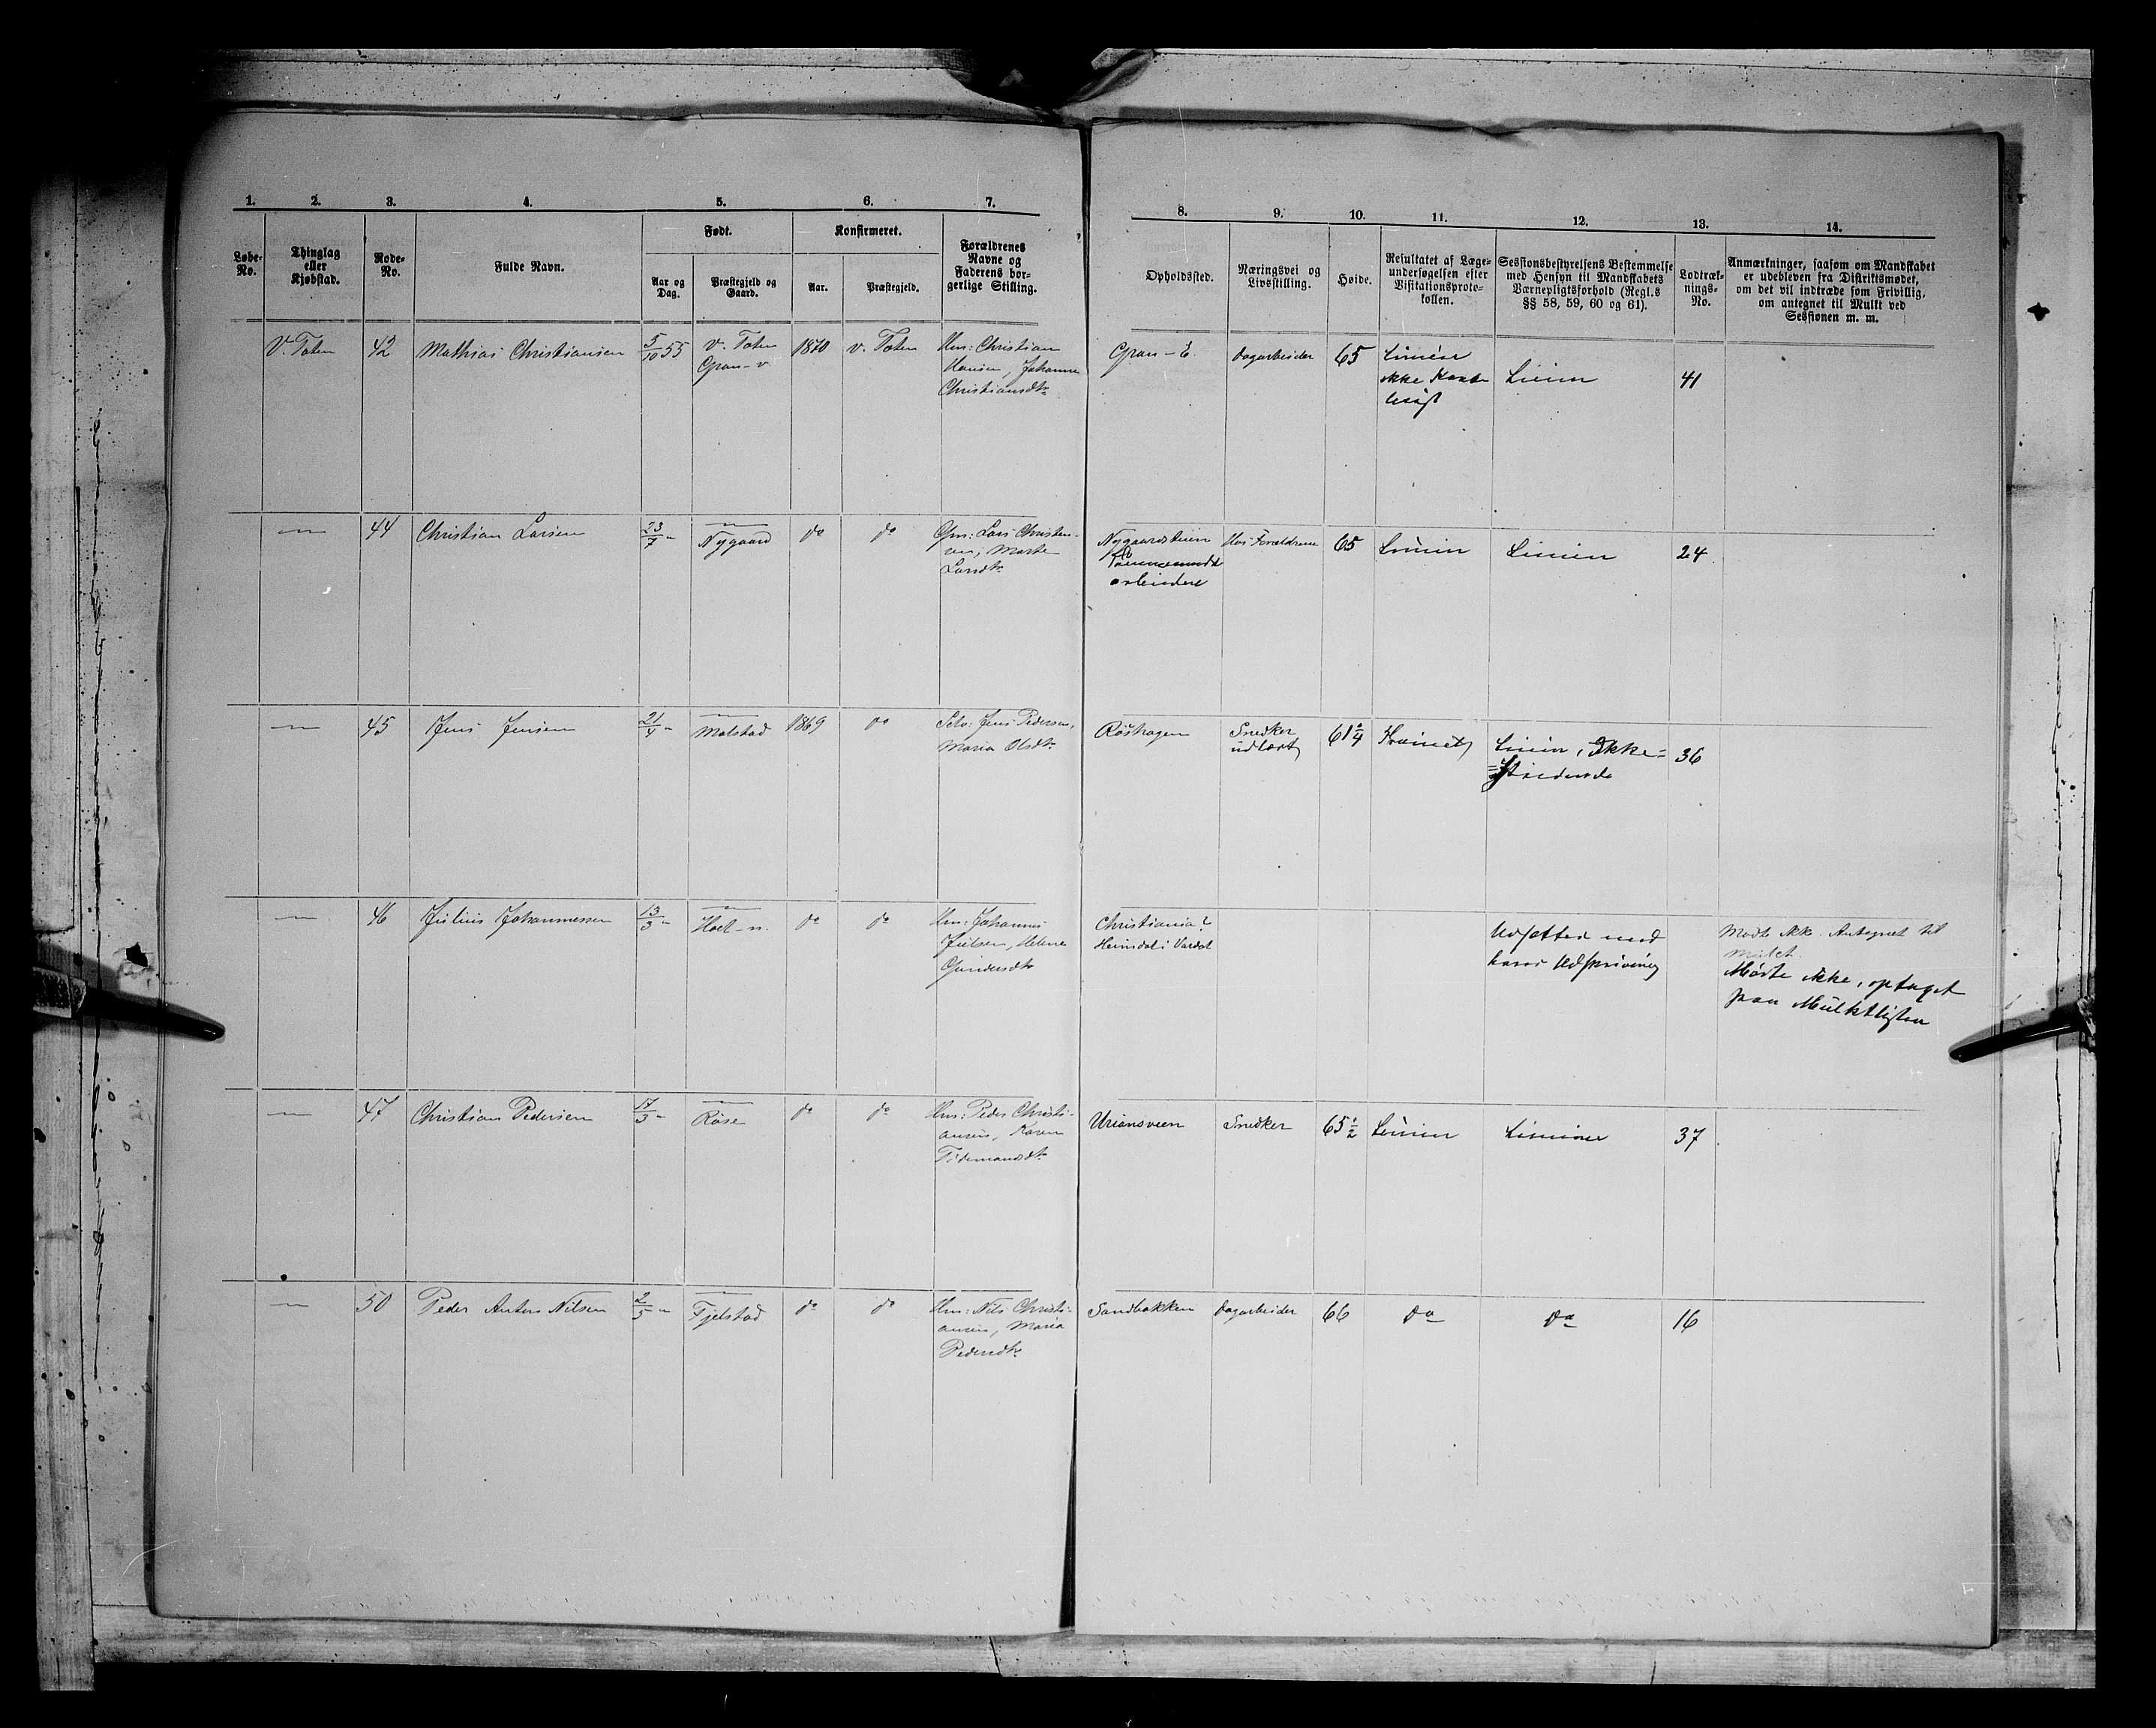 1. 2. 3. 4. 5. 6. 7.
Løbe-No. Thinglag eller Kjøbstad. Rode-No. Fulde Navn. Født. Konfirmeret. Forældrenes Navne og Faderens borgerlige Stilling.
Aar og Dag. Præstegjeld og Gaard. Aar. Præstegjeld.
8. 9. 10. 11. 12. 13. 14.
Opholdssted. Næringsvei og Livsstilling. Høide. Resultatet af Lægeundersøgelsen efter Visitationsprotokollen. Sessionsbestyrelsens Bestemmelse med Hensyn til Mandskabets Værnepligtsforhold (Regl.s §§ 58, 59, 60 og 61). Lodtræknings-No. Anmærkninger, saasom om Mandskabet er udebleven fra Distriktsmødet, om det vil indtræde som Frivillig, om antegnet til Mulkt ved Sessionen m. m.
V. Toten 42 Mathias Christiansen 5/10 55 V. Toten 1870 V. Toten Hm: Christian
Gran-v Hansen, Johanne
Christiansdtr
Gran-E. Dagarbeider 65 Linien
ikke Linien 41
— 44 Christian Larsen 23/7 " — do do Gm: Lars Christen-
Nygaard sen, Marte
Larsdtr
Nygaardseien Hos Forældrene 65 Linien Linien 24
arbeidere
— 45 Jens Jensen 21/4 " — 1869 do Selv: Jens Pedersen,
Molstad Maria Olsdtr
Röshagen Snedker 61 3/4 Linien, Ikke= 36
udlært =Stridende
— 46 Julius Johannessen 13/3 " — do do Hm: Johannes
Hoel-n. Julsen, Helene
Gundersdtr
Christiania? Udsættes med Mødte ikke. Antegnet til
Heimdal i Vardal hans Udskrivning Mulct.
Mødte ikke, optaget
paa Mulktlisten
— 47 Christian Pedersen 17/3 " — do do Hm: Peder Christi-
Röise ansen, Karen
Tidemansdtr
Uriansveen Snedker 65 1/2 Linien Linien 37
— 50 Peder Anton Nilsen 2/5 " — do do Hm: Nils Christi-
Fjelstad ansen, Maria
Pedersdtr
Sandbakken Dagarbeider 66 do do 16